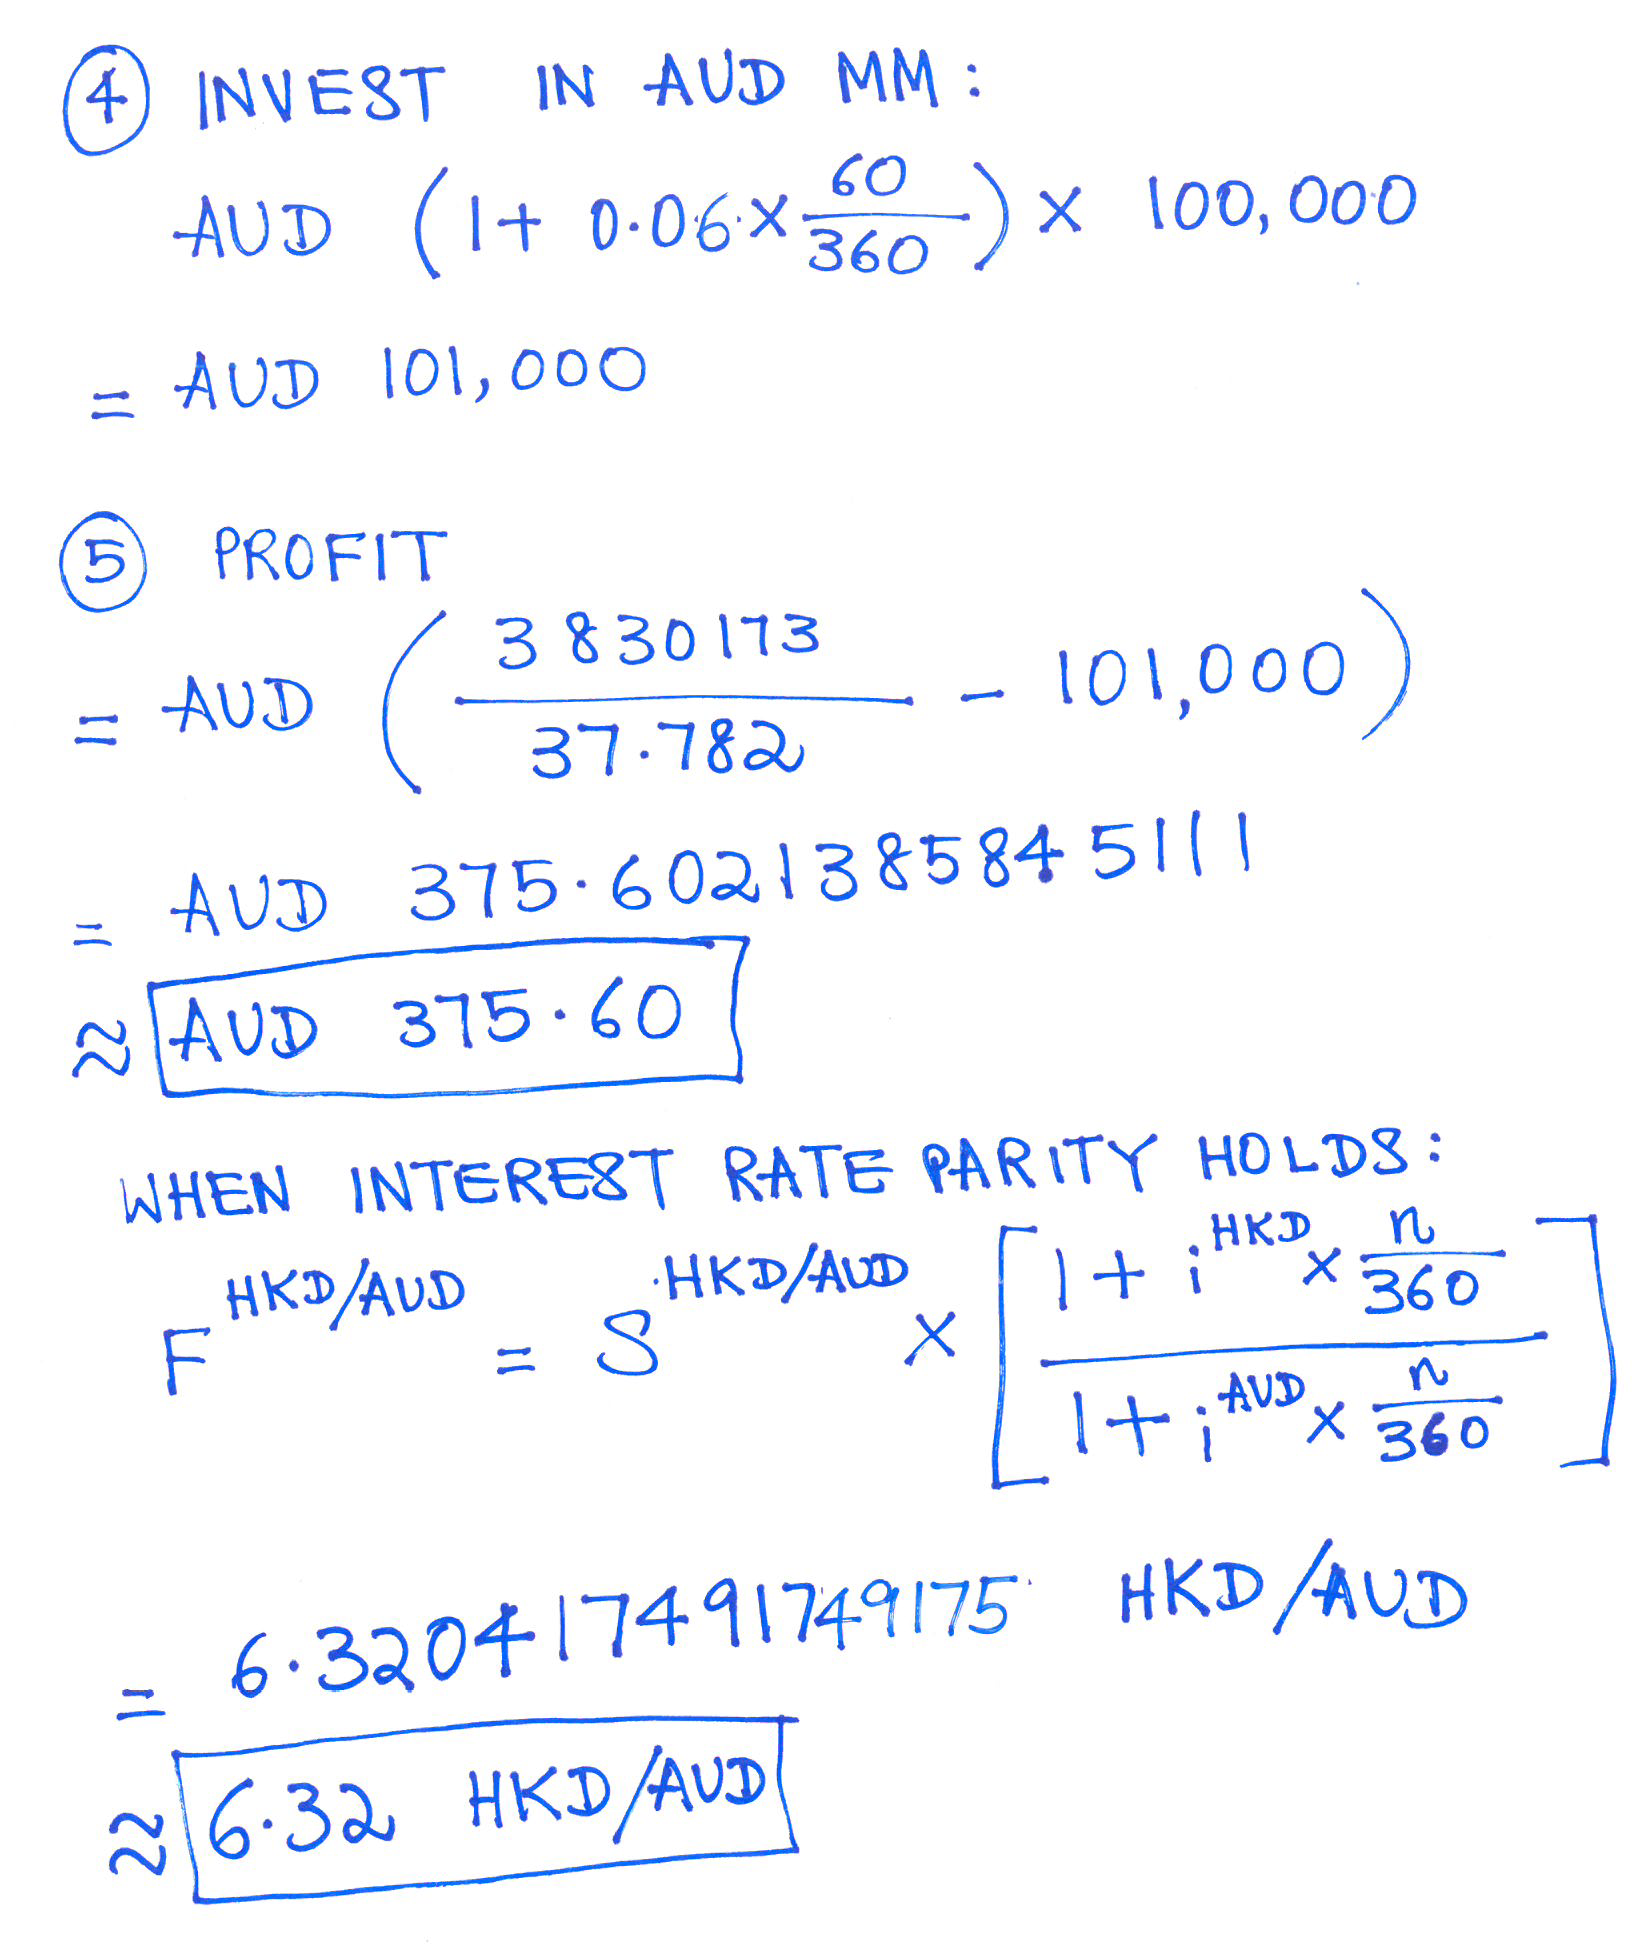 ④ INVEST IN AUD MM:
AUD (1 + 0.06 × 60/360) × 100,000
= AUD 101,000
⑤ PROFIT
= AUD (3830173/37.782 - 101,000)
= AUD 375.60213858451​11
≈ AUD 375.60
WHEN INTEREST RATE PARITY HOLDS:
F^HKD/AUD = S^HKD/AUD × [(1 + i^HKD × n/360)/(1 + i^AUD × n/360)]
= 6.3204174917491​75 HKD/AUD
≈ 6.32 HKD/AUD